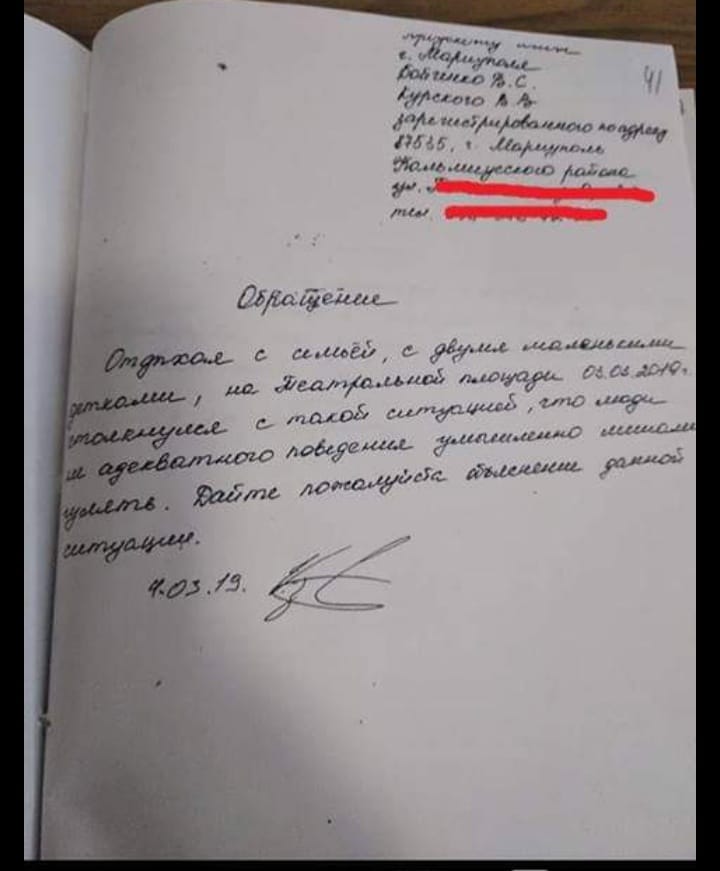 г. Мариуполя
Бойченко В.С.
Курского В.В
зарегистрированного по адресу
87535, г. Мариуполь
Кальмиусского района
ул.
тел.
41
Обращение
Отдыхая с семьёй, с двумя маленькими
детками, на Театральной площади 03.03.2019г.
столкнулся с такой ситуацией, что люди
адекватного поведения умышленно мешали
гулять. Дайте пожалуйста объяснение данной
ситуации.
4.03.19.